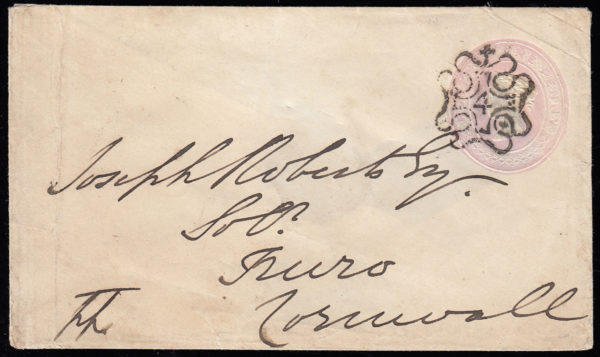 4
Joseph Roberts Esq.
Solr.
Truro
Cornwall